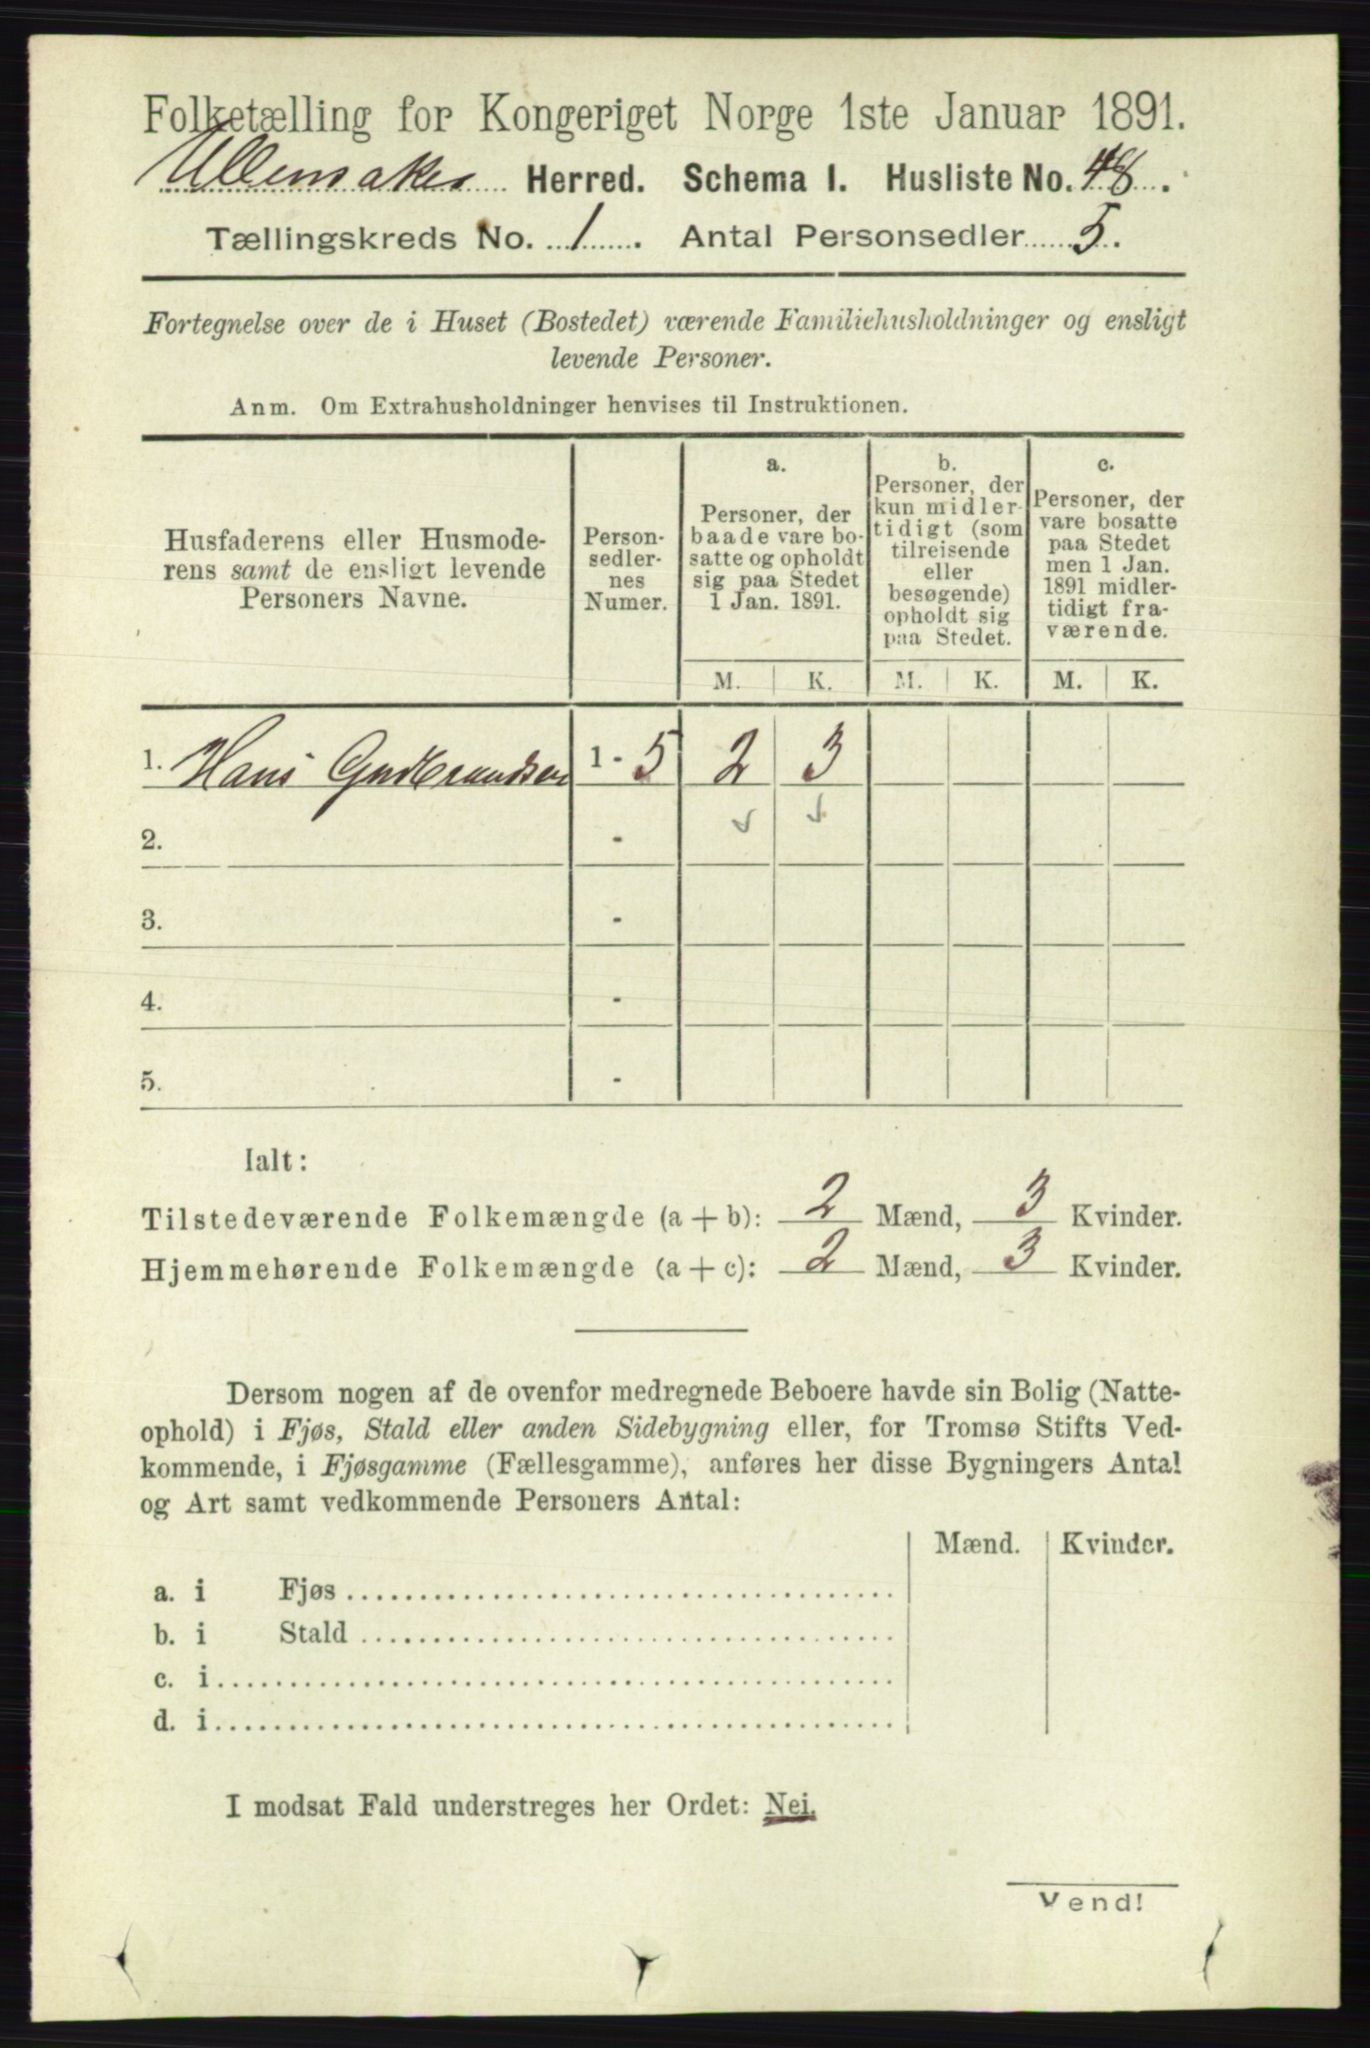 Folketælling for Kongeriget Norge 1ste Januar 1891.
Ullensaker Herred. Schema I. Husliste No. 48.
Tællingskreds No. 1. Antal Personsedler 5.
Fortegnelse over de i Huset (Bostedet) værende Familiehusholdninger og ensligt
levende Personer.
Anm. Om Extrahusholdninger henvises til Instruktionen.
Husfaderens eller Husmode-
rens samt de ensligt levende
Personers Navne.
Person-
sedler-
nes
Numer.
a.
Personer, der
baade vare bo-
satte og opholdt
sig paa Stedet
1 Jan. 1891.
b.
Personer, der
kun midler-
tidigt (som
tilreisende
eller
besøgende)
opholdt sig
paa Stedet.
c.
Personer, der
vare bosatte
paa Stedet
men 1 Jan.
1891 midler-
tidigt fra-
værende.
M. K. M. K. M. K.
1. Hans Gudbrandsen 1 - 5 2 3
2. -
3. -
4. -
5. -
Ialt:
Tilstedeværende Folkemængde (a + b): 2 Mænd, 3 Kvinder.
Hjemmehørende Folkemængde (a + c): 2 Mænd, 3 Kvinder.
Dersom nogen af de ovenfor medregnede Beboere havde sin Bolig (Natte-
ophold) i Fjøs, Stald eller anden Sidebygning eller, for Tromsø Stifts Ved-
kommende, i Fjøsgamme (Fællesgamme), anføres her disse Bygningers Antal
og Art samt vedkommende Personers Antal:
Mænd. Kvinder.
a. i Fjøs
b. i Stald
c. i
d. i
I modsat Fald understreges her Ordet: Nei.
Vend!